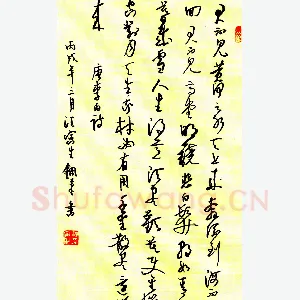 君不见黄河之水天上来奔流到海不
回君不见高堂明镜悲白发朝如青
暮成雪人生得意须尽欢莫使
空对月天生我材必有用千金散尽还
来
唐李白诗
丙戌年三月 书
Shufawang.CN